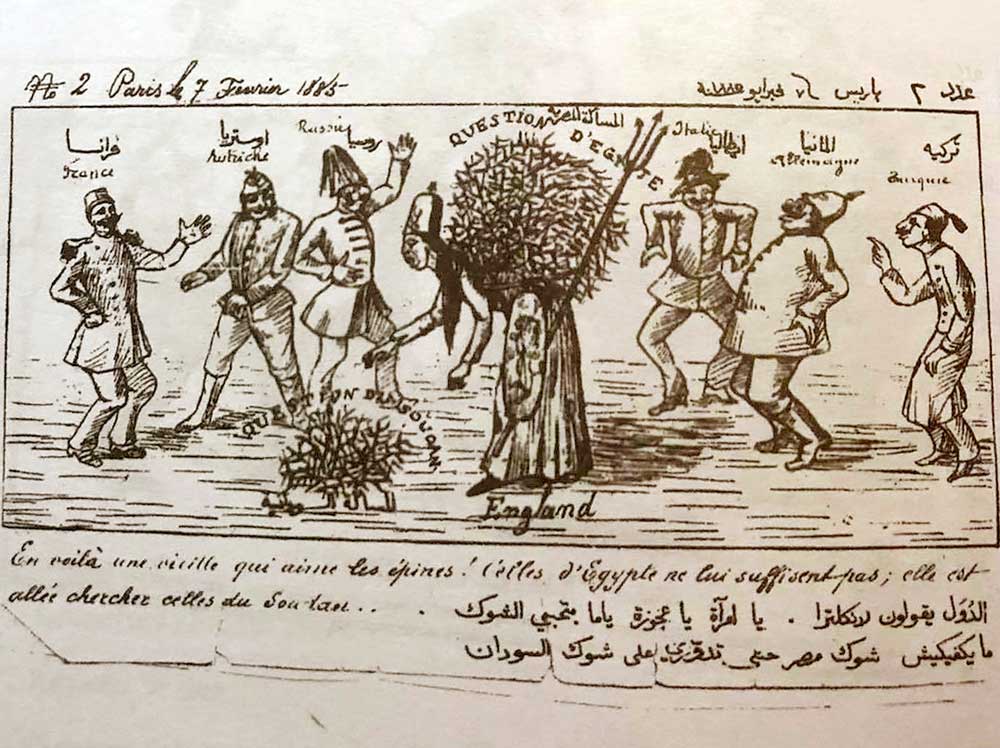 No 2 Paris le 7 Fevrier 1885
عدد ٢ باريس ٧ فبراير
فرانسا
France
اوستريا
Autriche
Russie روسيا
QUESTION D'EGYPTE
المسألة المصرية
Italie ايطاليا
المانيا
Allemagne
تركيه
Turquie
QUESTION DU SOUDAN
England
En voilà une vieille qui aime les épines! Celles d'Egypte ne lui suffisent pas; elle est
allée chercher celles du Soudan..
الدُوَل يقولون لانكلترا . يا امرأة يا عجوزة ياما بتحبي الشوك .
ما يكفيكيش شوك مصر حتى تدوّري على شوك السودان